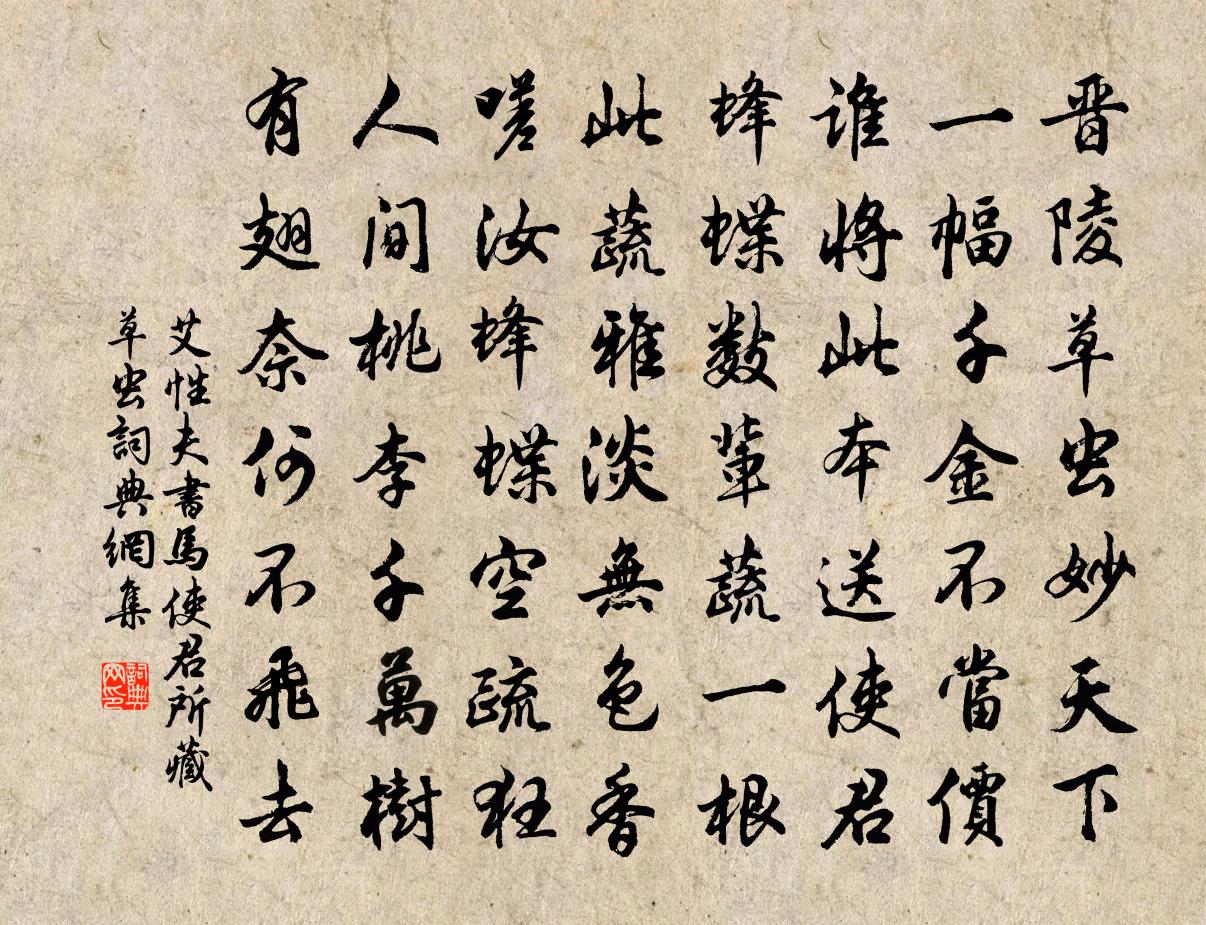 晋陵草虫妙天下
一幅千金不當價
谁將此本送使君
蜂蝶数輩蔬一根
此蔬雅淡無色香
嗟汝蜂蝶空疏狂
人间桃李千萬樹
有翅奈何不飛去
艾性夫書馬使君所藏
草虫詞典網集
詞典网印